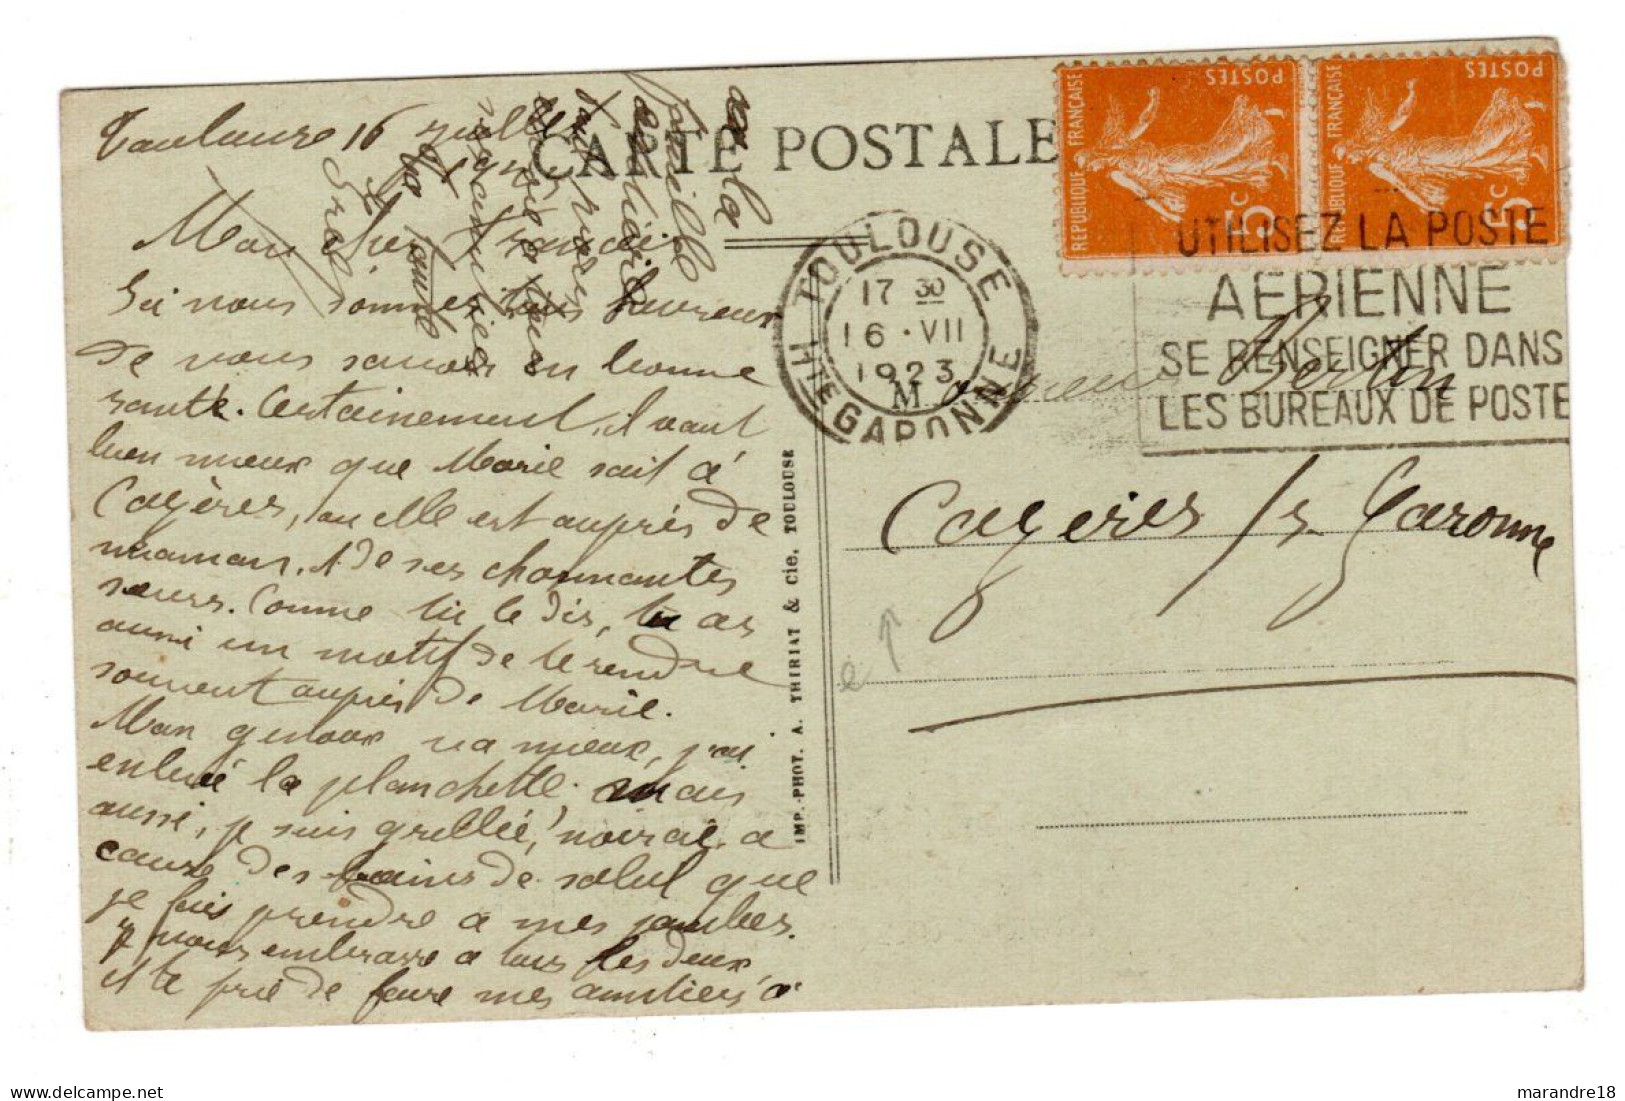 CARTE POSTALE
Toulouse 16 juillet
Mon cher François
Ici nous sommes tous heureux
de vous savoir en bonne
santé. Certainement, il vaut
bien mieux que Marie soit à
Cazères, ou elle est auprès de
maman, et de ses charmantes
sœurs. Comme tu le dis, tu as
aussi un motif de te rendre
souvent auprès de Marie.
Mon genoux va mieux, j'ai
enlevé la planchette. mais
aussi, je suis grillé, noirci, a
cause des bains de soleil que
je fais prendre a mes jambes.
Je vous embrasse a tous les deux
et te prie de faire mes amitiés a
la
famille
REPUBLIQUE FRANÇAISE
POSTES
5c
REPUBLIQUE FRANÇAISE
POSTES
5c
TOULOUSE
17 30
16 · VII
1923
Hte GARONNE
UTILISEZ LA POSTE
AERIENNE
SE RENSEIGNER DANS
LES BUREAUX DE POSTE
M
Cazères /s Garonne
IMP.-PHOT. A. THIRIAT & Cie. TOULOUSE
marandre18